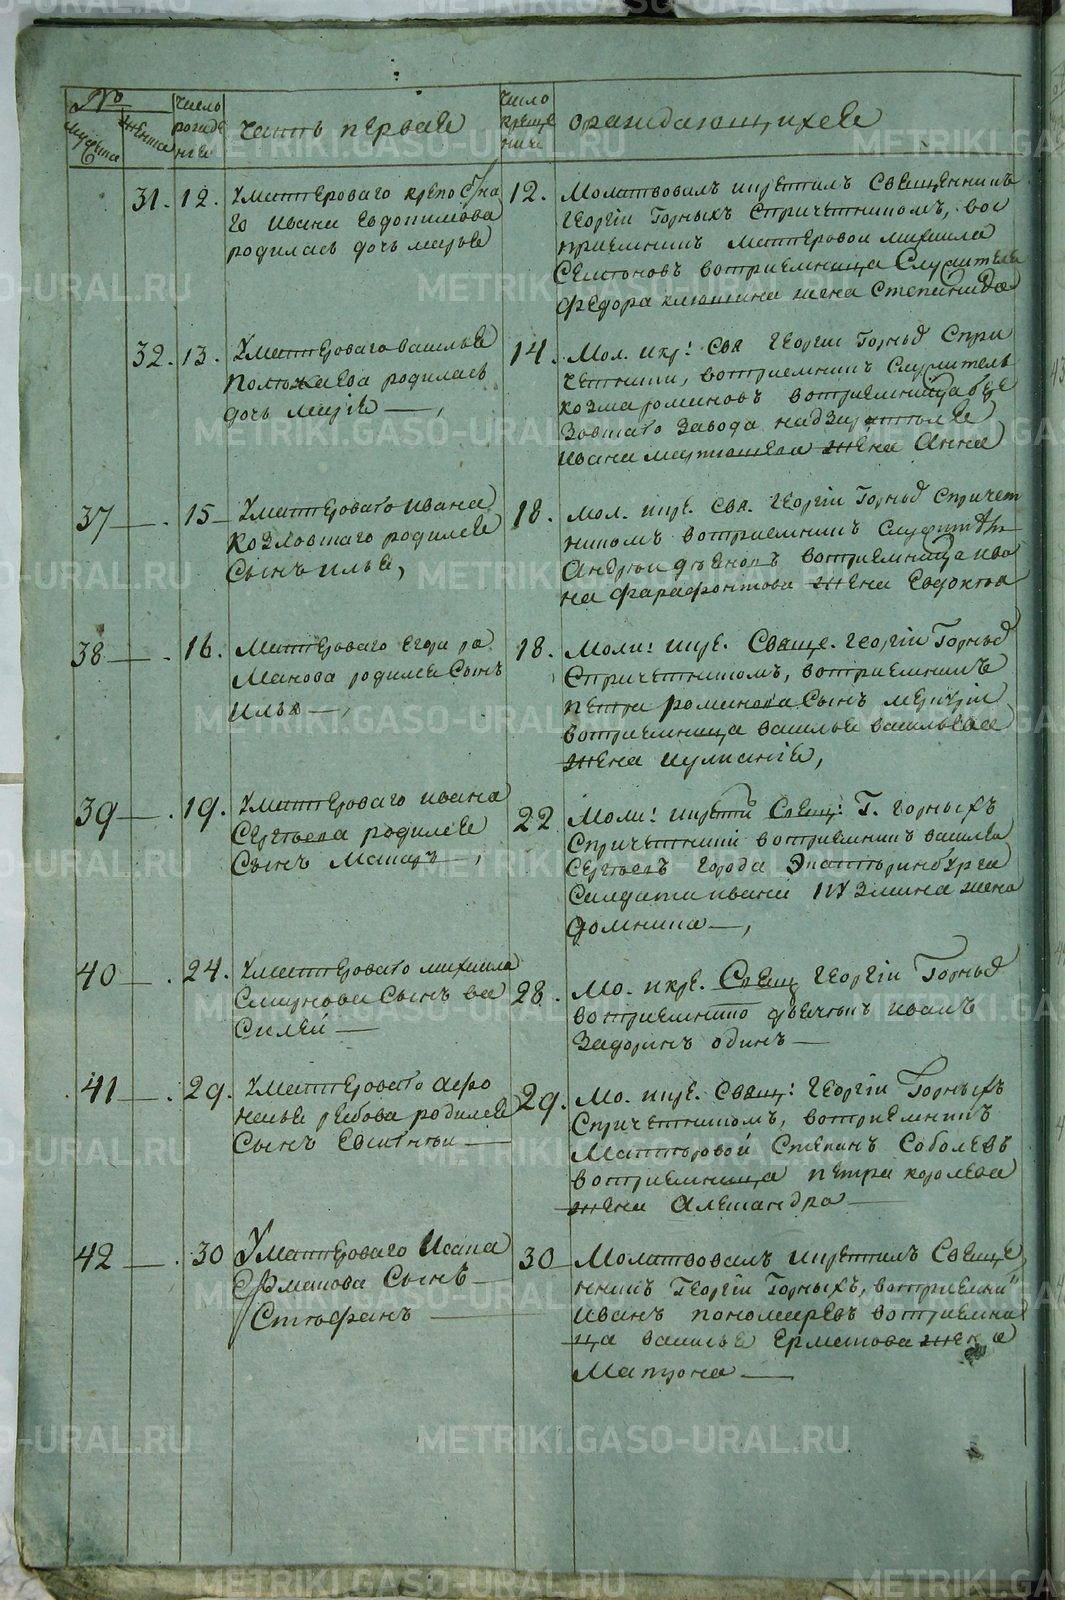 №
мужеска
женска
число рожде нiе
часть первая
число креще нiе
ораждающихся
31. 12. Умастероваго крепостна
го Ивана Евдокимова
родилась дочь марья
12. Молитвовалъ икрестилъ Священникъ
Георгiи Горныхъ Спричетникомъ, вос
приемникъ мастеровои михаила
Семионовъ восприемница Служителя
Федора клюшина жена Степанида
32. 13. Умастероваго василья
родилась
дочь марiя
14. Мол. икр: Свя Георгiи Горныхъ Спри
четники, восприемникъ Служитель
козма романовъ восприемница
завода надзирателя
Ивана жена Анна
37 15 Умастероваго ивана
козловскаго родился
Сынъ илья,
18. мол. икре. Свя. Георгiи Горныхъ Спричет
никомъ восприемникъ
Андреи восприемница ива
на фарафонтова жена Евдокiя
38 16. Мастероваго Егора ро
манова родился Сынъ
Илья
18. Моли: икре. Свяще. Георгiи Горныхъ
Спричетникомъ, восприемникъ
петра романова Сынъ меркурiи
восприемница василья васильева
жена иулианiя,
39 19. Умастероваго ивана
Сергеева родился
Сынъ Макаръ
22 Моли: икрести Свещ: Г. Горныхъ
Спричетники восприемникъ василеи
Сергеевъ города Экатеринбурга
Салдата ивана кузмина жена
домника
40 24. Умастероваго михаила
Смирнова Сынъ ва
Силеи
28. Мо. икре. Свещ Георгiи Горныхъ
восприемникъ дьячекъ иванъ
Задоринъ одинъ
41 29. Умастероваго афо
насья рябова родился
Сынъ Евсигнеи
29. Мо. икре. Свящ: Георгiи Горныхъ
Спричетникомъ, восприемникъ
Мастеровой Степанъ Соболевъ
восприемница петра королева
жена Александра
42 30 Умастероваго Исака
Ермакова Сынъ
Стефанъ
30 Молитвовалъ икрестилъ Свяще
нникъ Георгiи Горныхъ, восприемни
Иванъ пономаревъ восприемни
ца василья Ермакова жена
Матрона
METRIKI.GASO-URAL.RU